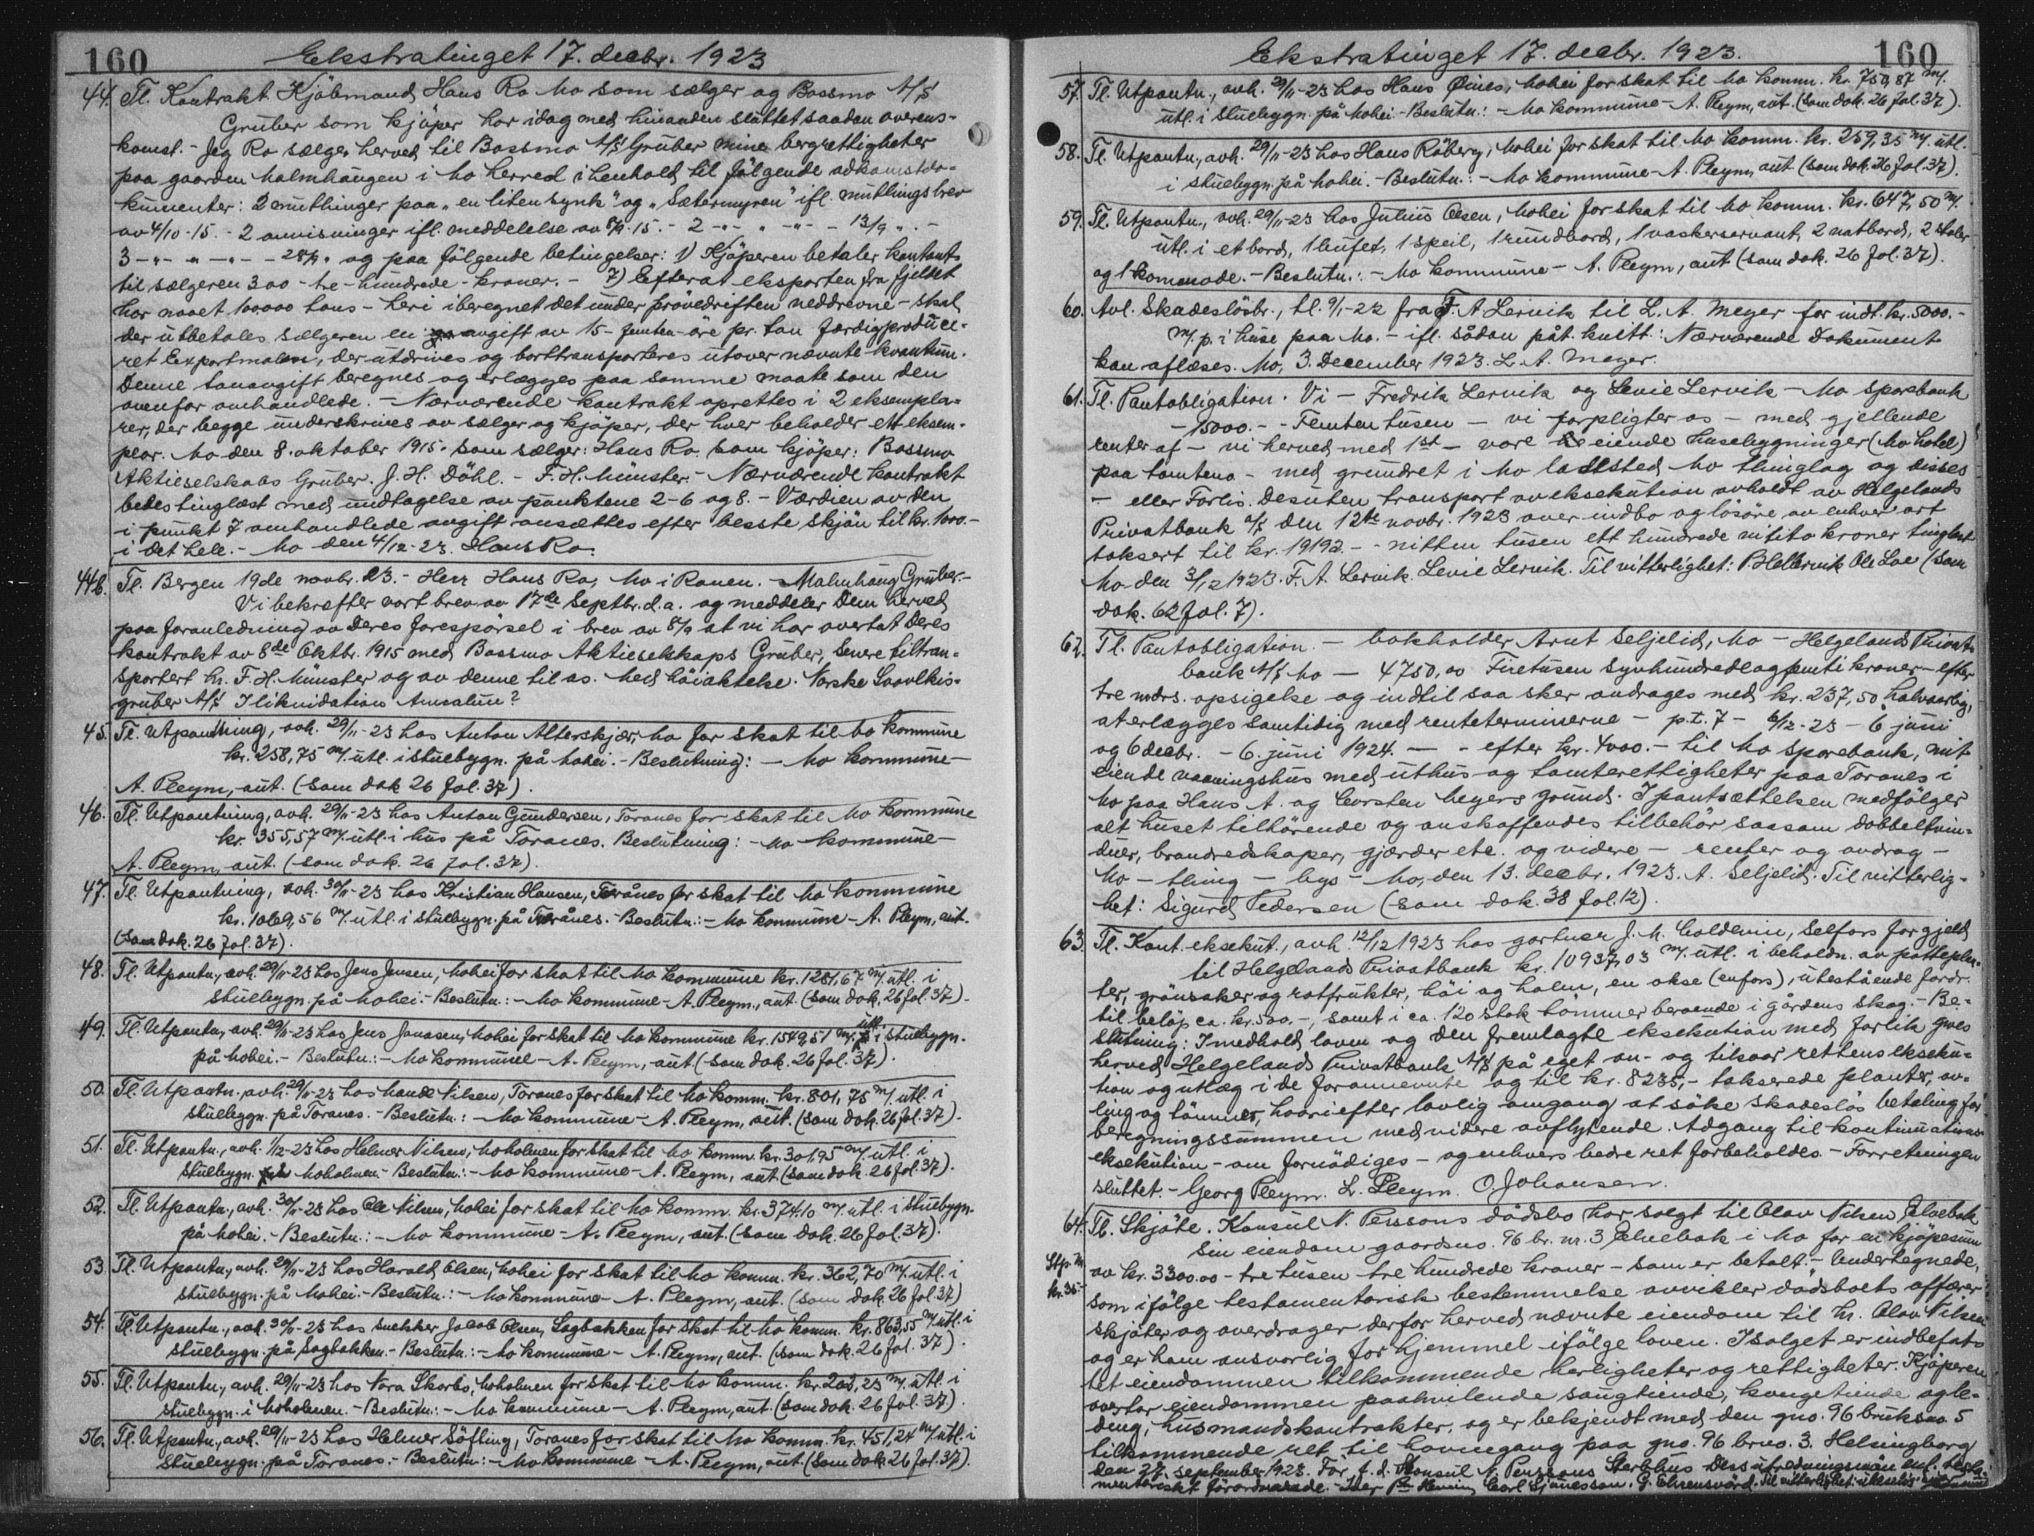 160
Ekstratinget 17. decbr. 1923
44. Tl. Kontrakt. Kjöbmand Hans Ro Mo som sælger og Bossmo A/S
Gruber som kjöper har idag med hinanden sluttet saadan overens-
komst. - Jeg Ro sælger herved til Bossmo A/S Gruber mine bergrettigheter
paa gaarden Malmhaugen i Mo herred i henhold til fölgende adkomstdo-
kumenter: 2 muthinger paa "en liten synk" og "Sætermyren" ifl. muthingsbrev
av 4/10-15. - 2 anvisninger ifl. meddelelse av 6/9-15. - 2 -"- " -"- - 13/9 " . -
3 -"- " -"- - 28/9 " og paa fölgende betingelser: 1) Kjöperen betaler kontant
til sælgeren 300 - tre - hundrede - kroner. - 7) Efterat eksporten fra fjeldet
har naaet 100000 tons - heri iberegnet det under prövedriften uddrevne - skal
der utbetales sælgeren en avgift av 15 - femten - öre pr. ton færdigproduce-
ret Exportmalm, der utdrives og borttransporteres utover nævnte kvantum.
Denne tonavgift beregnes og erlægges paa samme maate som den
ovenfor omhandlede. - Nærværende kontrakt oprettes i 2 eksempla-
rer, der begge underskrives av sælger og kjöper, der hver beholder ett eksem-
plar. Mo den 8. oktober 1915. Som sælger: Hans Ro. Som kjöper: Bossmo
Aktieselskabs Gruber. J. H. Döhl. - F. H. Münster. - Nærværende kontrakt
bedes tinglæst med undtagelse av punktene 2-6 og 8. - Værdien av den
i punkt 7 omhandlede avgift ansættes efter besste skjön til kr. 1000.-
i det hele. - Mo den 4/12-23. Hans Ro.
44b. Tl. Bergen 19de novbr. 23. - Herr Hans Ro, Mo i Ranen. - Malmhaug Gruber. -
Vi bekræfter vort brev av 17de Septbr. d.a. og meddeler Dem herved
paa foranledning av Deres forespörsel i brev av 8/9 at vi har overtat Deres
kontrakt av 8de Oktbr. 1915 med Bossmo Aktieselskaps Gruber, senere tiltran-
sportert hr. F. H. Münster og av denne til os. Med höiaktelse. Norske Svovlkis-
gruber A/S I likvidation
45. Tl. Utpantning, avh. 29/11-23 hos Anton Alterskjær, Mo for skat til Mo kommune
kr. 258,75 m/. utl. i stuebygn. på Mohei. - Beslutning: - Mo kommune -
A. Pleym, aut. (som dok 26 fol. 37).
46. Tl. Utpantning, avh. 29/11-23 hos Anton Gundersen, Toranes for skat til Mo kommune
kr. 355,57 m/. utl. i hus på Toranes. Beslutning: - Mo kommune -
A. Pleym, aut. (som dok. 26 fol. 37).
47. Tl. Utpantning, avh. 30/11-23 hos Kristian Hansen, Torånes for skat til Mo kommune
kr. 1069,56 m/. utl. i stuebygn. på Torånes. - Beslutn.: - Mo kommune - A. Pleym, aut.
(som dok. 26 fol. 37).
48. Tl. Utpantn., avh. 29/11-23 hos Jens Jensen, Mohei for skat til Mo kommune kr. 1281,67 m/. utl. i
stuebygn. på Mohei. - Beslutn.: - Mo kommune - A. Pleym, aut. (som dok. 26 fol. 37).
49. Tl. Utpantn., avh. 29/11-23 hos Jens Jonassen, Mohei for skat til Mo kommune kr. 1549,51 m/. utl. i stuebygn.
på Mohei. - Beslutn.: - Mo kommune - A. Pleym, aut (som dok. 26 fol. 37).
50. Tl. Utpantn., avh. 29/11-23 hos Nilsen, Toranes for skat til Mo komm. kr. 801,75 m/. utl. i
stuebygn. på Toranes. - Beslutn.: - Mo kommune - A. Pleym, aut. (som dok. 26 fol. 37).
51. Tl. Utpantn., avh. 1/12-23 hos Helmer Nilsen, Moholmen for skat til Mo komm. kr. 301,95 m/. utl. i
stuebygn. Moholmen. - Beslutn.: - Mo kommune - A. Pleym, aut (som dok. 26 fol. 37).
52. Tl. Utpantn., avh. 30/11-23 hos Ole Nilsen, Mohei for skat til Mo komm. kr. 374,10 m/. utl. i stuebygn.
på Mohei. - Beslutn.: - Mo kommune - A. Pleym, aut. (som dok. 26 fol. 37).
53. Tl. Utpantn., avh. 29/11-23 hos Harald Olsen, Mohei for skat til Mo komm. kr. 362,70 m/. utl. i
stuebygn. på Mohei. - Beslutn.: - Mo kommune - A. Pleym, aut. (som dok. 26 fol. 37)
54. Tl. Utpantn., avh. 30/11-23 hos snekker Jacob Olsen, Sagbakken for skat til Mo komm. kr. 863,55 m/. utl. i
stuebygn. på Sagbakken. - Beslutn.: - Mo kommune - A. Pleym, aut. (som dok. 26 fol. 37).
55. Tl. Utpantn., avh. 29/11-23 hos Nora Skorbo, Moholmen for skat til Mo komm. kr. 208,25 m/. utl. i
stuebygn. i Moholmen. - Beslutn.: - Mo kommune - A. Pleym, aut. (som dok. 26 fol. 37).
56. Tl. Utpantn., avh. 29/11-23 hos Helmer Söfting, Toranes for skat til Mo komm. kr. 451,24 m/. utl. i
stuebygn. på Toranes. - Beslutn.: - Mo kommune - A. Pleym, aut. (som dok. 26 fol. 37).
Ekstratinget 17. decbr. 1923.
160
57. Tl. Utpantn., avh. 29/11-23 hos Hans Öines, Mohei for skat til Mo komm. kr. 750,87 m/.
utl. i stuebygn. på Mohei. - Beslutn.: - Mo kommune - A. Pleym, aut. (som dok. 26 fol. 37).
58. Tl. Utpantn., avh. 29/11-23 hos Hans Röberg, Mohei for skat til Mo komm. kr. 259,35 m/. utl.
i stuebygn. på Mohei. - Beslutn.: - Mo kommune - A. Pleym, aut (som dok. 26 fol. 37).
59. Tl. Utpantn., avh. 29/11-23 hos Julius Olsen, Mohei for skat til Mo komm. kr. 647,50 m/.
utl. i et bord, 1 bufet, 1 speil, 1 rundbord, 1 vaskeservant, 2 natbord, 2 stoler
og 1 komode. - Beslutn.: - Mo kommune - A. Pleym, aut (som dok. 26 fol. 37).
60. Avl. Skadeslösbr., tl. 9/1-22 fra F. A Lervik til L. A. Meyer for indt. kr. 5000.-
m/. p. i huse paa Mo. - ifl. sådan påt. kvitt: Nærværende Dokument
kan aflæses. Mo, 3. December 1923. L. A. Meyer.
61. Tl. Pantobligation. Vi - Fredrik Lervik og Levie Lervik - Mo Sparebank
- 15000. - - Femten tusen - vi forpligter os - med gjellende
renter af - vi herved med 1st - vore eiende husebygninger (Mo hotel)
paa tomtena - med grundret i Mo ladested Mo thinglag og disses
- eller Forlis. Desuten transport av eksekution avholdt av Helgelands
Privatbank A/S den 12te novbr. 1923 over indbo og lösöre av enhver art
taksert til kr. 19192. - - nitten tusen ett hundrede nitito kroner tinglæst
Mo den 3/12 1923. F. A. Lervik. Levie Lervik. Til vitterlighet: Ole Loe (som
dok. 62 fol. 7).
62. Tl. Pantobligation. - bokholder Arnt Seljelid, Mo - Helgelands Privat-
bank A/S Mo - 4750,00 Firetusen syvhundredeogfemti kroner - efter
tre mdrs. opsigelse og indtil saa sker avdrages med kr. 237,50 halvaarlig,
at erlægges samtidig med renteterminerne - p.t. 7 - 6/12-23 - 6 juni
og 6 decbr. - 6. juni 1924. - - efter kr. 4000.- til Mo Sparebank, mit
eiende vaaningshus med uthus og tomterettigheter paa Toranes i
Mo paa Hans A. og Corsten Meyers grund. I pantsættelsen medfölger
alt huset tilhörende og anskaffendes tilbehör saasom dobbeltvin-
duer, brandredskaper, gjærder etc. og videre - renter og avdrag -
Mo - thing - bys - Mo, den 13. decbr. 1923. A. Seljelid. Til vitterlig-
het: Sigurd Pedersen (som dok. 38 fol. 12).
63. Tl. Kont. eksekut., avh. 12/12 1923 hos gartner J. M. Coldevin, Selfors for gjeld
til Helgelands Privatbank kr. 10937,03 m/. utl. i beholdn. av potteplan-
ter, grönsaker og rotfrukter, höi og halm, en okse (enfors), utestående fordr.
til belöp ca. kr. 500.-, samt i ca. 120 stok tömmer beroende i gårdens skog. - Be-
slutning: I medhold loven og den fremlagte eksekution med forlik gives
herved Helgelands Privatbank A/S på eget an- og tilsvar rettens ekseku-
tion og utlæg i de forannevnte og til kr. 8235,- takserede planter, av-
ling og tömmer, hvori efter lovlig omgang at söke skadeslös betaling for
beregningssummen med videre avflytende. Adgang til kontinuations-
eksekution - om fornödiges - og enhvers bedre ret forbeholdes - Forretningen
sluttet. - Georg Pleym. L. Pleym. O. Johansen.
64. Tl. Skjöte. Konsul N. Perssons dödsbo har solgt til Olav Nilsen, Elvebak
Stp. m.
kr. 35.-
sin eiendom gaardsno. 96 br. nr. 3 Elvebak i Mo for en kjöpesum
av kr. 3300.00 - tre tusen - tre hundrede kroner - som er betalt. - Undertegnede,
som ifölge testamentarisk bestemmelse avvikler dödsboets affærer
skjöter og overdrager derfor herved nævnte eiendom til hr. Olav Nilsen
og er ham ansvarlig for hjemmel ifölge loven. I salget er indbefat-
tet eiendommen tilkommende herligheter og rettigheter. Kjöperen
overtar eiendommen paahvilende saugtiende, kongetiende og le-
ding, husmandskontrakter, og er bekjendt med den gno. 96 bruksno. 5
tilkommende ret til havnegang paa gno. 96 brno. 3. Helsingborg
den 27. september 1923. För f. d. Konsul N. Perssons Sterbhus Dess utredningsmän enl. testa-
mentariskt förordnande. - Carl Göransson. G. Ehrensvärd. Til vitterlighet: